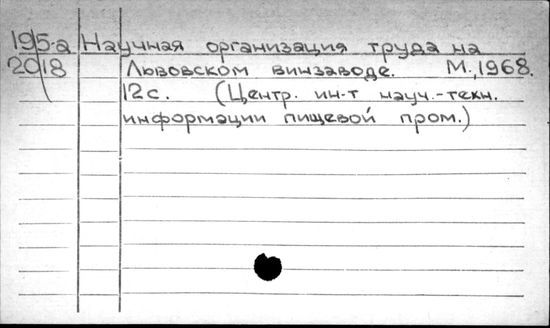 195-а Научная организация труда на
2018 Львовском винзаводе. М., 1968.
12с. (Центр. ин-т науч.-техн.
информации пищевой пром.)